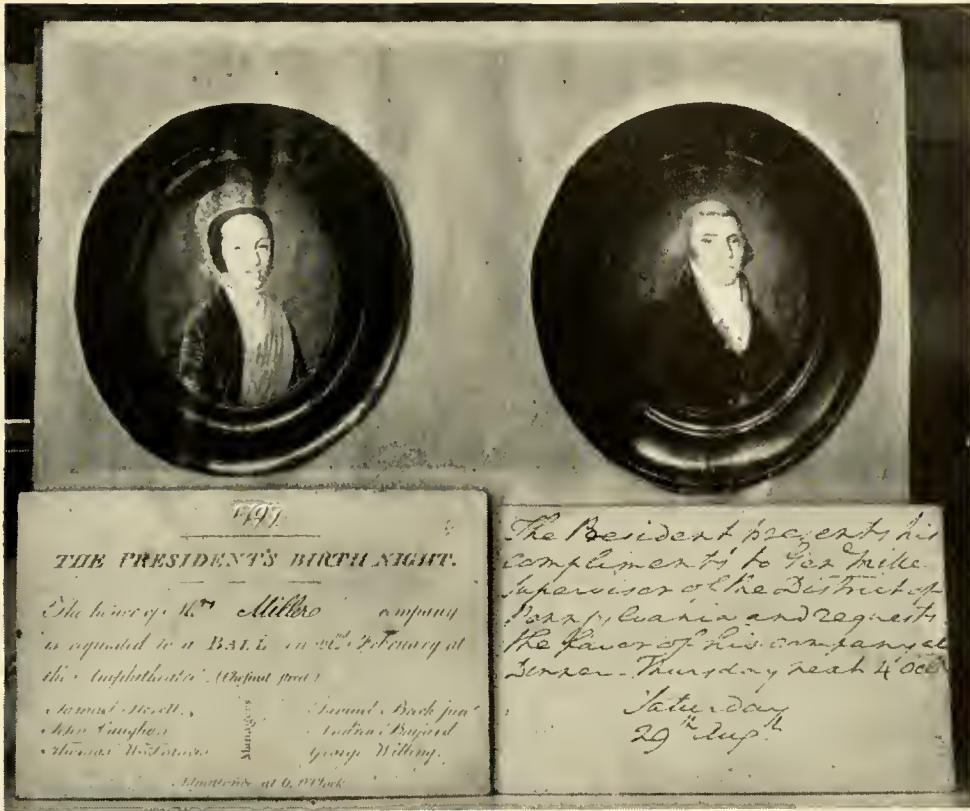 1797
THE PRESIDENT'S BIRTH NIGHT.
The honor of Mrs Millers company
is requested to a BALL on 22nd February at
the Amphitheatre (Chesnut street)
Managers
Samuel
John Vaughan
Thomas
Andrew Bayard
George Willing.
Admittance at 6, O'Clock
The President presents his
compliments to Gen Mille
Supervisor of the District of
Pennsylvania and requests
the favor of his company at
Dinner Thursday next 4 Ock
Saturday
29th Augst